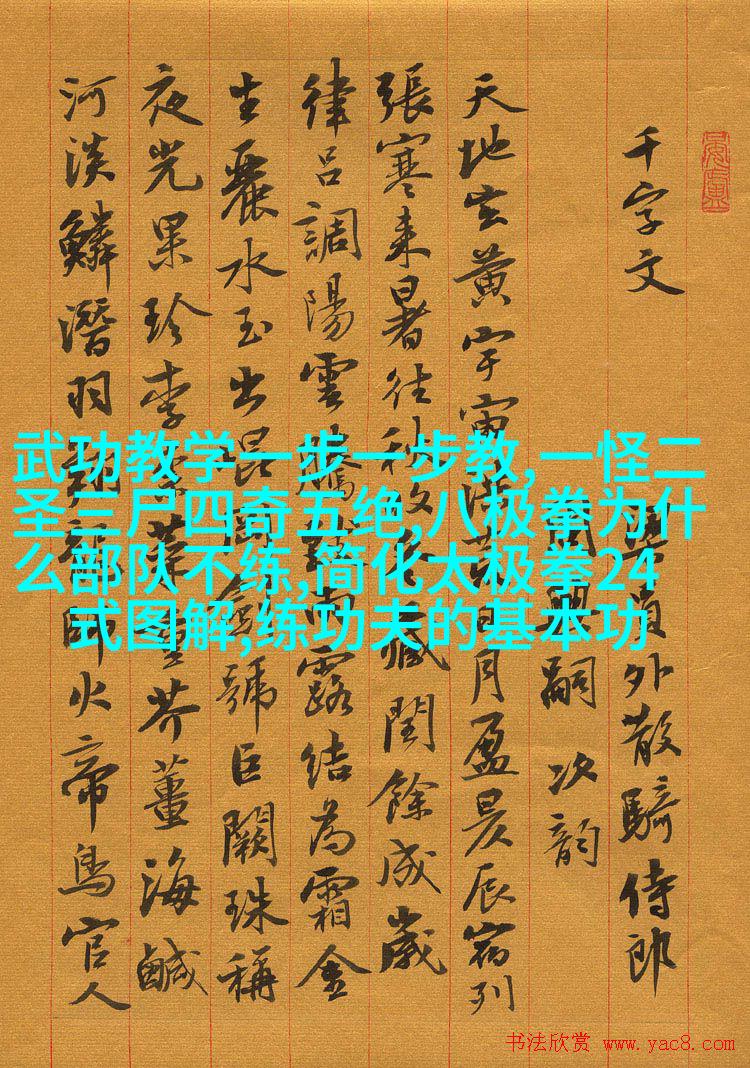 千字文
員外散騎侍郎
周興嗣次韵
天地玄黃宇宙洪荒日月盈昃辰宿列
張寒来暑往秋收冬藏閏餘成歲
律呂調陽雲騰致雨露結為霜金
生麗水玉出崑岡劍號巨闕珠稱
夜光果珍李柰菜重芥薑海鹹
河淡鱗潛羽翔龍師火帝鳥官人
武功教学一步一步教,一怪二
圣三尸四奇五绝,八极拳为什
么部队不练,简化太极拳24
式图解,练功夫的基本功
书法欣赏 www.yac8.com